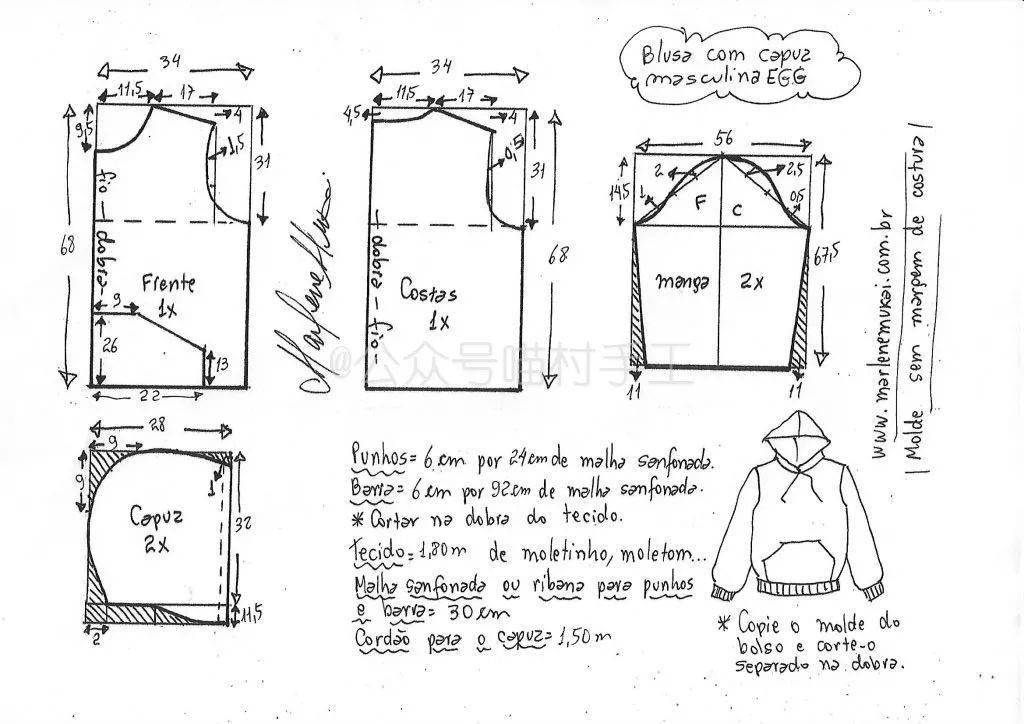 Blusa com capuz
masculina EGG
34
11,5
17
4
9,5
1,5
31
68
fio — dobra
Frente
1x
9
26
13
22
34
11,5
17
4
4,5
0,5
31
68
dobra — fio
Costas
1x
56
14,5
2
2,5
1
0,5
F
C
67,5
manga
2x
11
11
28
9
9
1
Capuz
2x
32
11,5
2
Punhos= 6 cm por 24cm de malha sanfonada.
Barra= 6 cm por 92 cm de malha sanfonada.
* Cortar na dobra do tecido.
Tecido= 1,80 m de moletinho, moletom...
Malha sanfonada ou ribana para punhos
e barra= 30 cm
Cordão para o capuz= 1,50 m
* Copie o molde do
bolso e corte-o
separado na dobra.
www.marlenemukai.com.br
Molde sem margem de costura
@公众号喵村手工